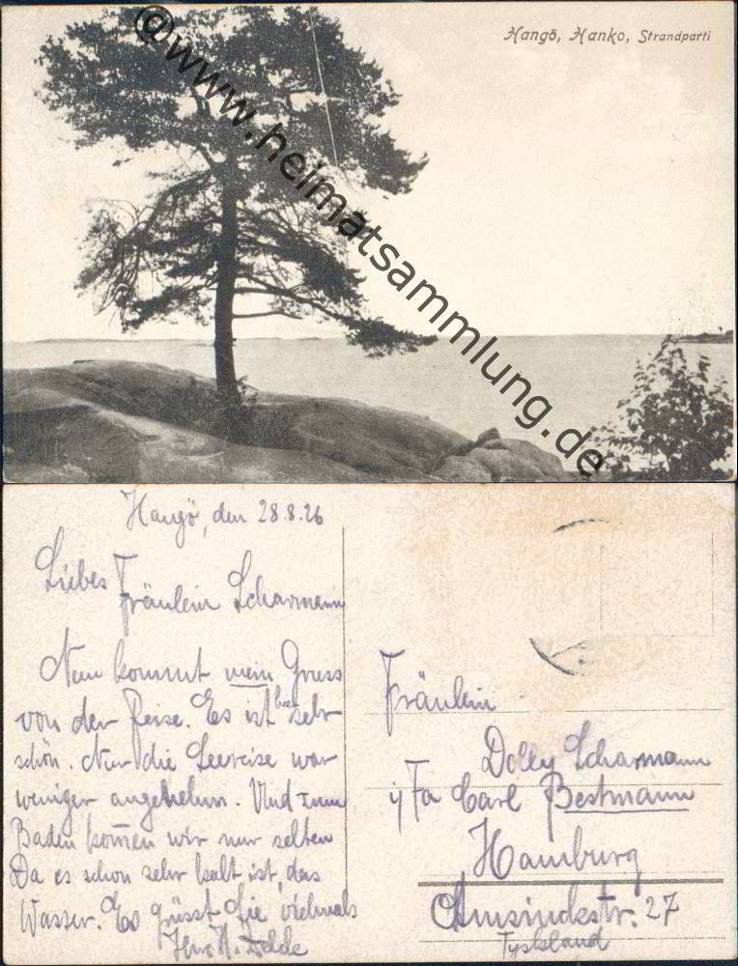 Hangö, Hanko, Strandparti
@www.heimatsammlung.de
Hangö, den 28.8.26
Liebes
Fräulein Scharmann
Nun kommt mein Gruss
von der Reise. Es ist hier sehr
schön. Nur die Seereise war
weniger angenehm. Und zum
Baden kom̄en wir nur selten
Da es schon sehr kalt ist, das
Wasser. Es grüsst Sie vielmals
Ihre
Fräulein
Dolly Scharmann
i/Fa Carl Bestmann
Hamburg
Amsinckstr. 27
Tyskland